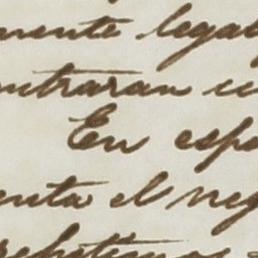 mente legal
ntraran
En espe
enta el neg